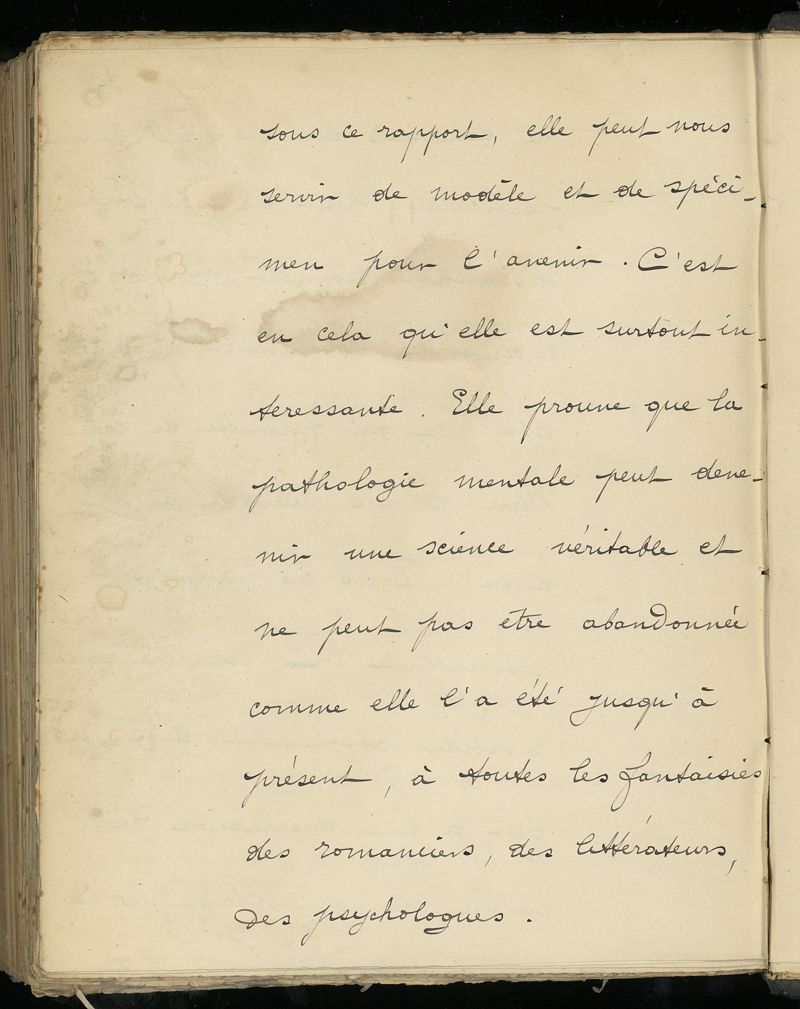 sous ce rapport, elle peut nous
servir de modèle et de spéci-
men pour l'avenir. C'est
en cela qu'elle est surtout in-
teressante. Elle prouve que la
pathologie mentale peut deve-
nir une science véritable et
ne peut pas etre abandonnée
comme elle l'a été jusqu'à
présent, à toutes les fantaisies
des romanciers, des littérateurs,
des psychologues.